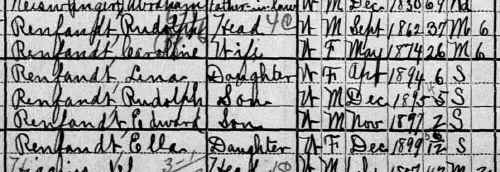 Abraham Father-in-law W M Dec 1830 69 Wd
Renfandt, Rudolph Head W M Sept 1862 37 M 6
Renfandt, Caroline Wife W F May 1874 26 M 6
Renfandt, Lena Daughter W F Apr 1894 6 S
Renfandt, Rudolph Son W M Dec 1895 5 S
Renfandt, Edward Son W M Nov 1897 2 S
Renfandt, Ella Daughter W F Dec 1899 S
Head W M